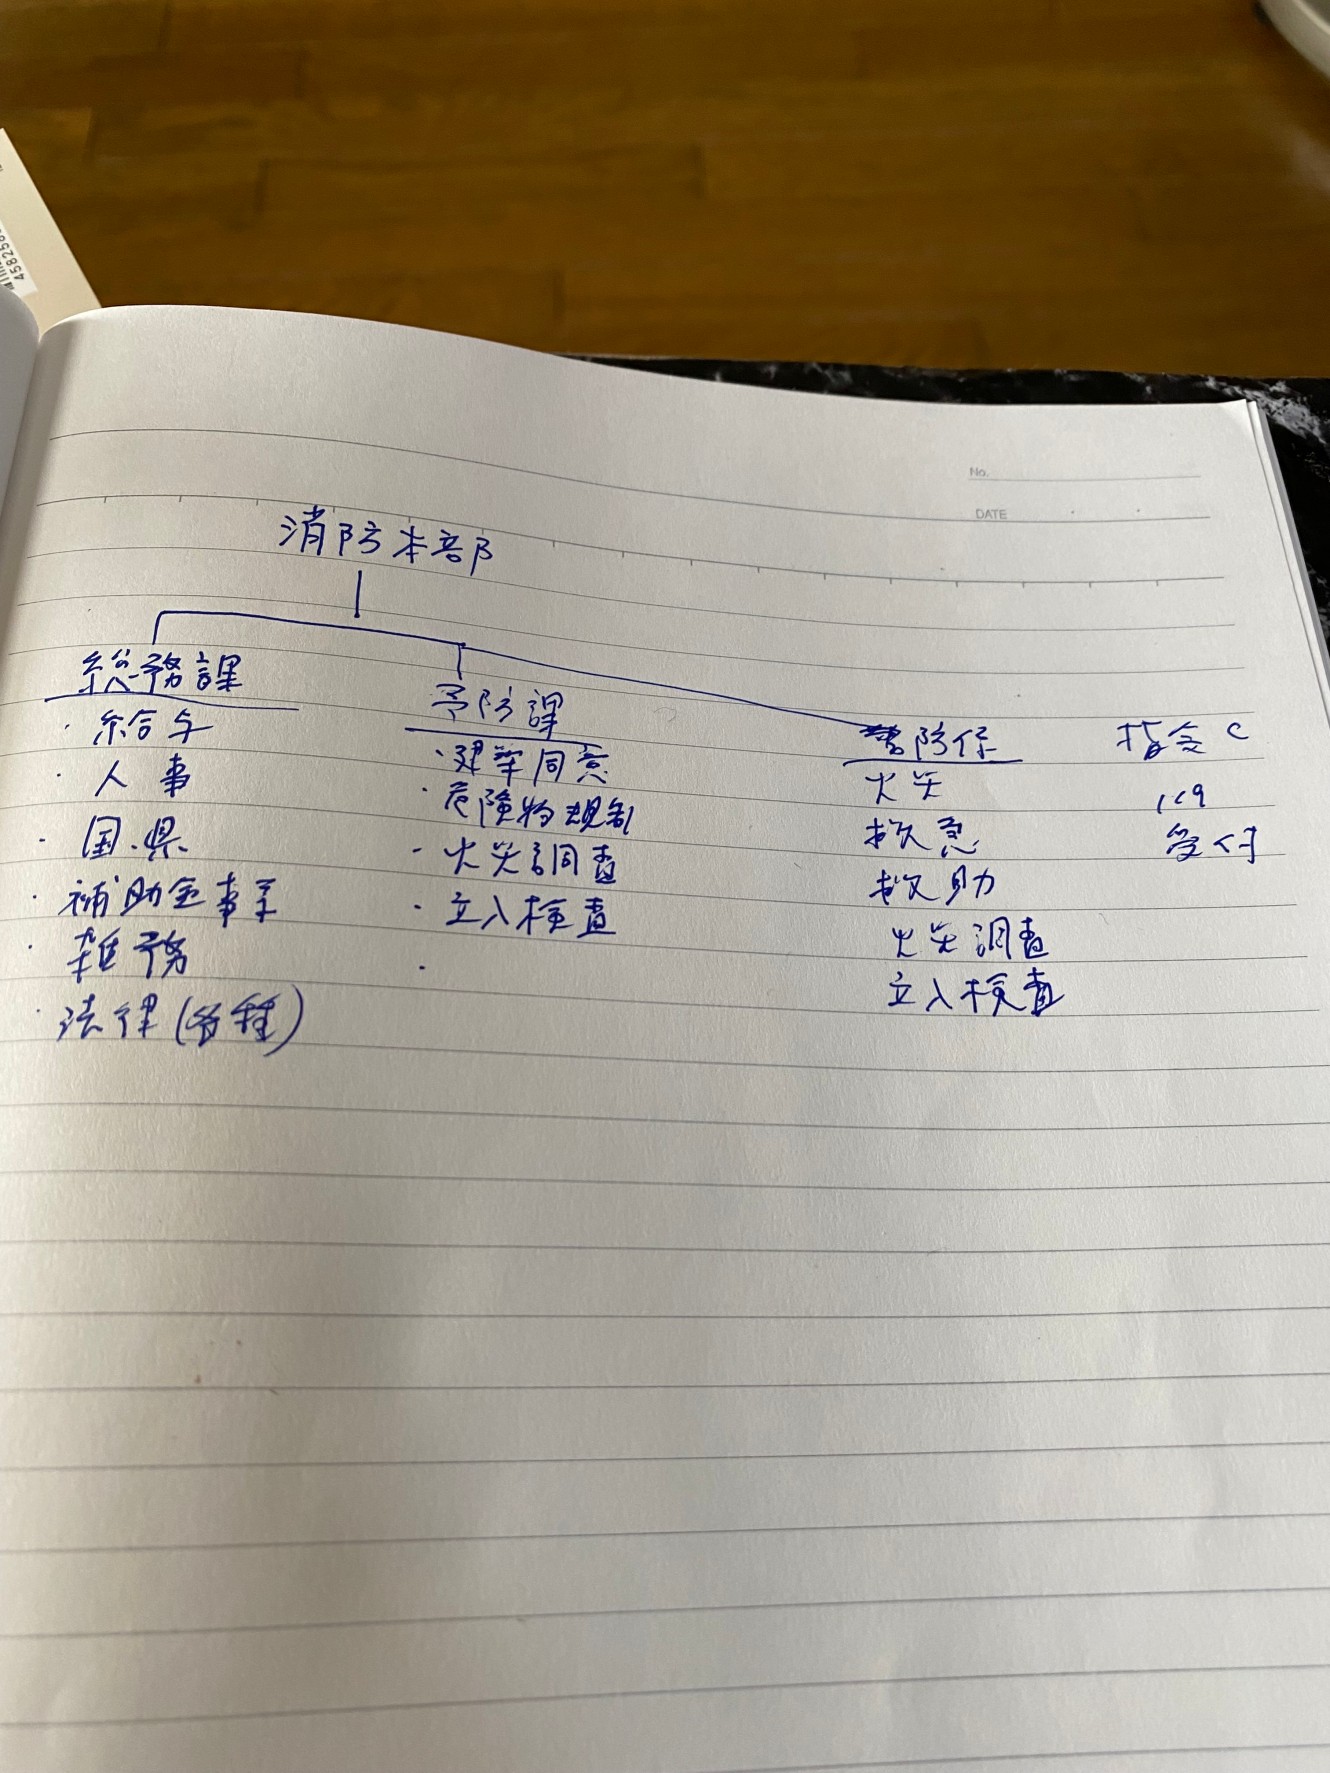 No.
DATE
消防本部
総務課
・給与
・人事
・国・県
・補助金事業
・雑務
・法律(各種)
予防課
・建築同意
・危険物規制
・火災調査
・立入検査
・
警防係
火災
救急
救助
火災調査
立入検査
指令C
119
受付